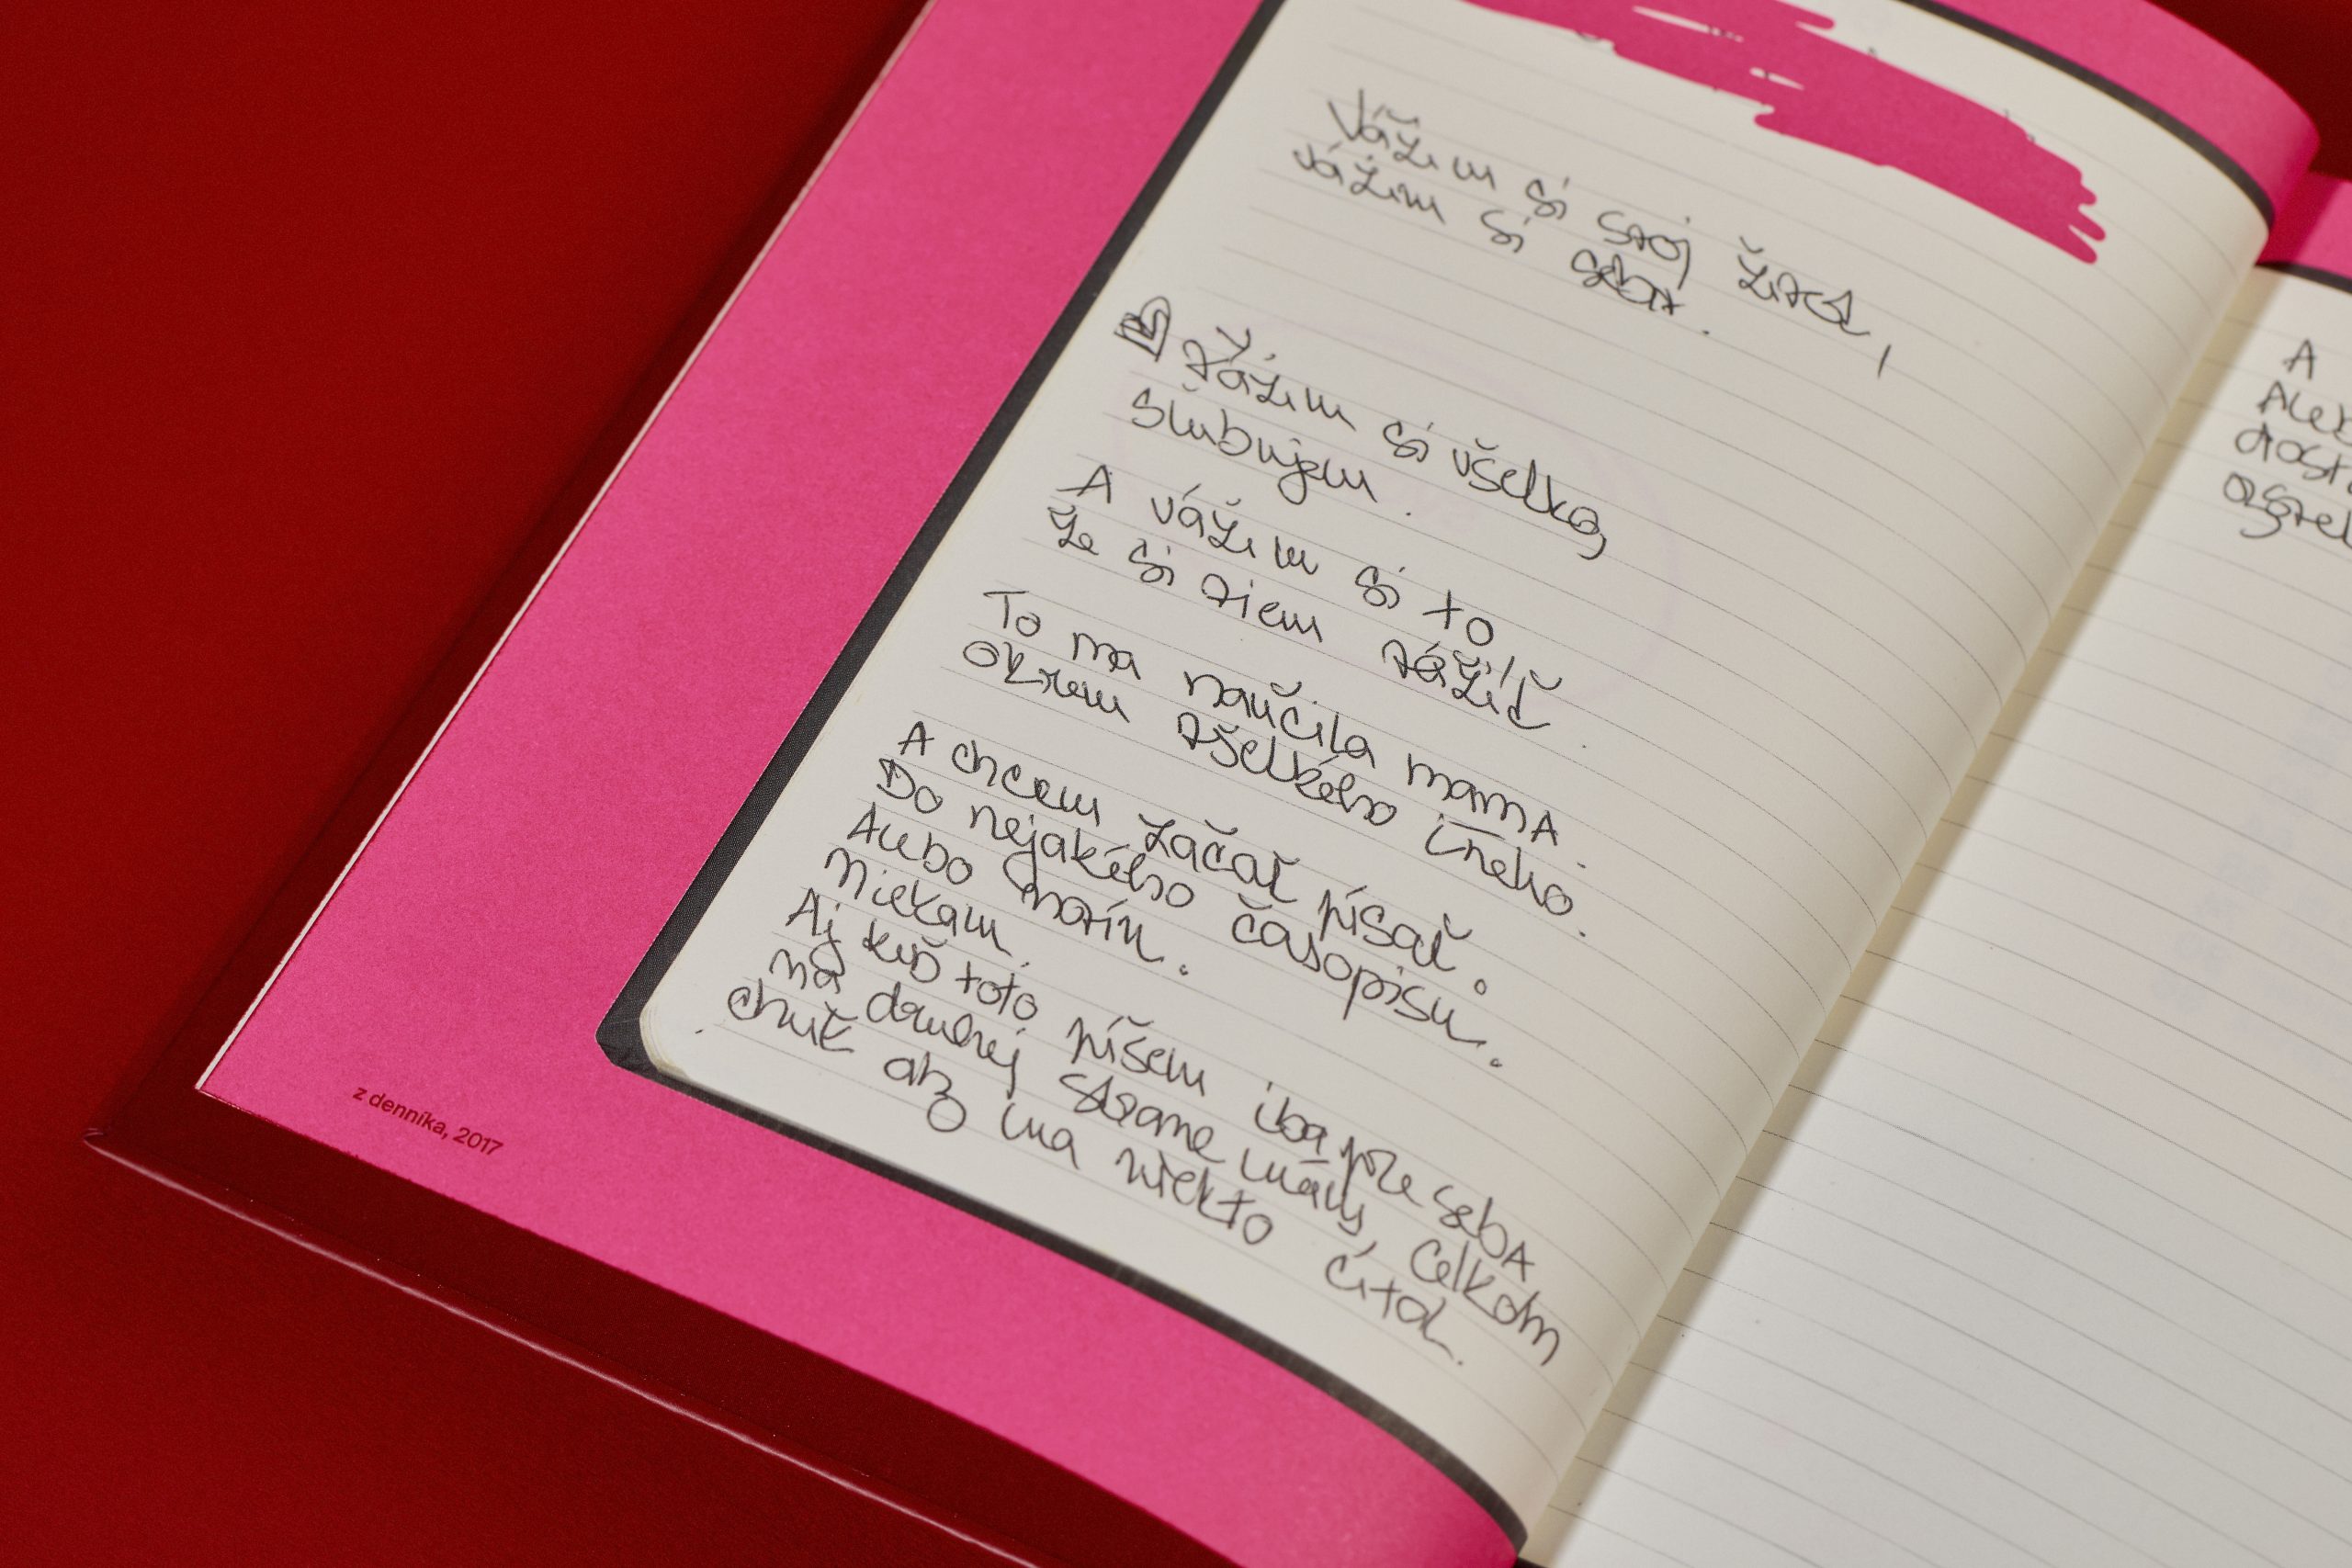 Vážim si svoj život,
vážim si seba.
Vážim si všetko,
sľubujem.
A vážim si to
že si viem vážiť.
To ma naučila mama.
okrem všetkého iného.
A chcem začať písať.
Do nejakého časopisu.
Alebo novín.
Niekam.
Aj keď toto píšem iba pre seba
na druhej strane mám, celkom
chuť aby ma niekto čítal.
z denníka, 2017
A